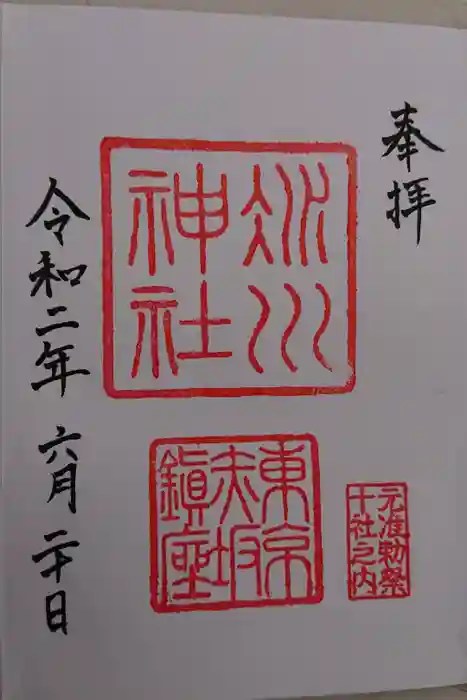 奉拝
氷川
神社
東京
赤坂
鎮座
元准勅祭
十社之内
令和二年 六月 二十日